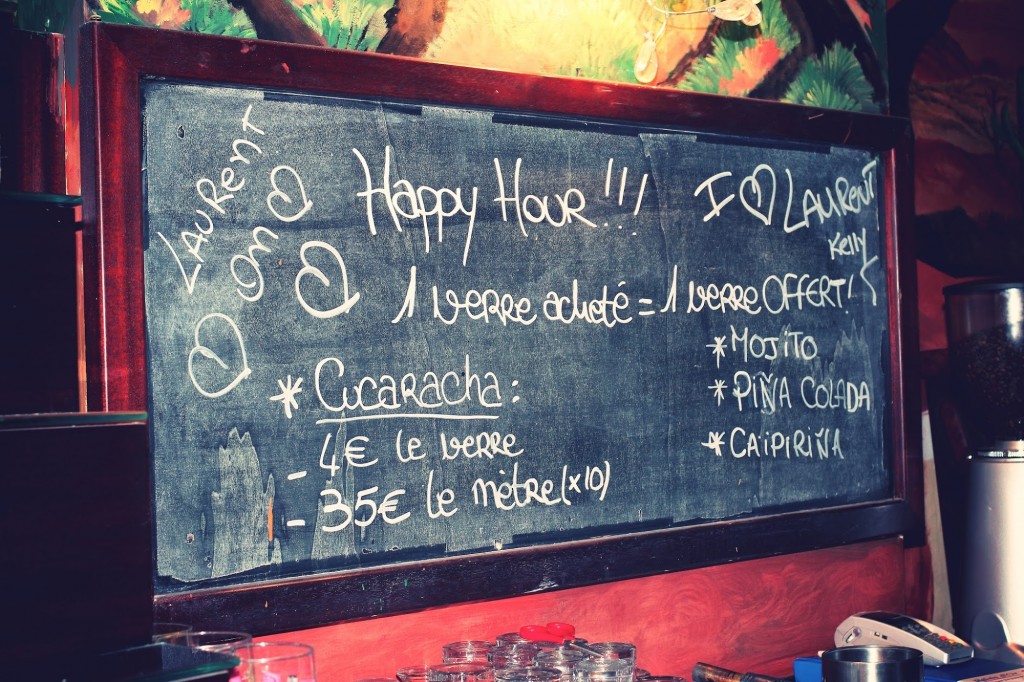 LAURENT
on
Happy Hour !!!
I ♡ LAURENT
Kelly
1 verre acheté = 1 verre OFFERT!
* Cucaracha :
- 4€ le verre
- 35€ le mètre (x10)
* MOJITO
* PIÑA COLADA
* CAIPIRIÑA